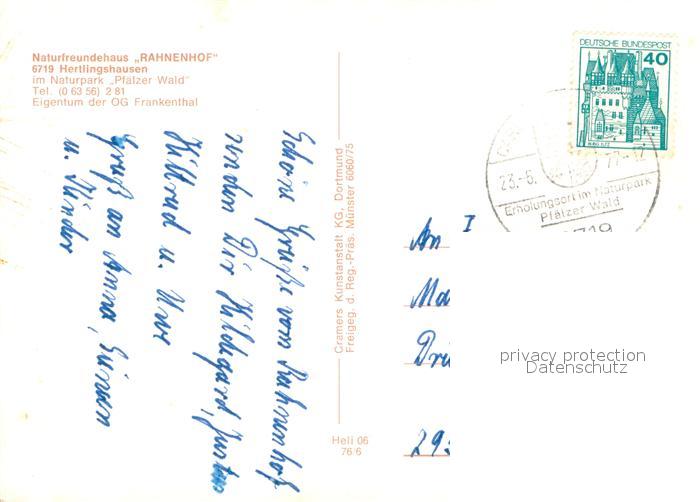 Naturfreundehaus „RAHNENHOF"
6719 Hertlingshausen
im Naturpark „Pfälzer Wald"
Tel. (0 63 56) 2 81
Eigentum der OG Frankenthal
Schöne Grüße vom Rahnenhof
senden Dir Hildegard, Justus
Hiltrud u. Uwe
Gruß an Anna,
u. Kinder
Cramers Kunstanstalt KG, Dortmund
Freigeg. d. Reg.-Präs. Münster 6060/75
Heli 06
76/6
DEUTSCHE BUNDESPOST
40
BURG ELTZ
23.-5. 77-17
Erholungsort im Naturpark
Pfälzer Wald
6719
An I
Ma
Dri
29
privacy protection
Datenschutz